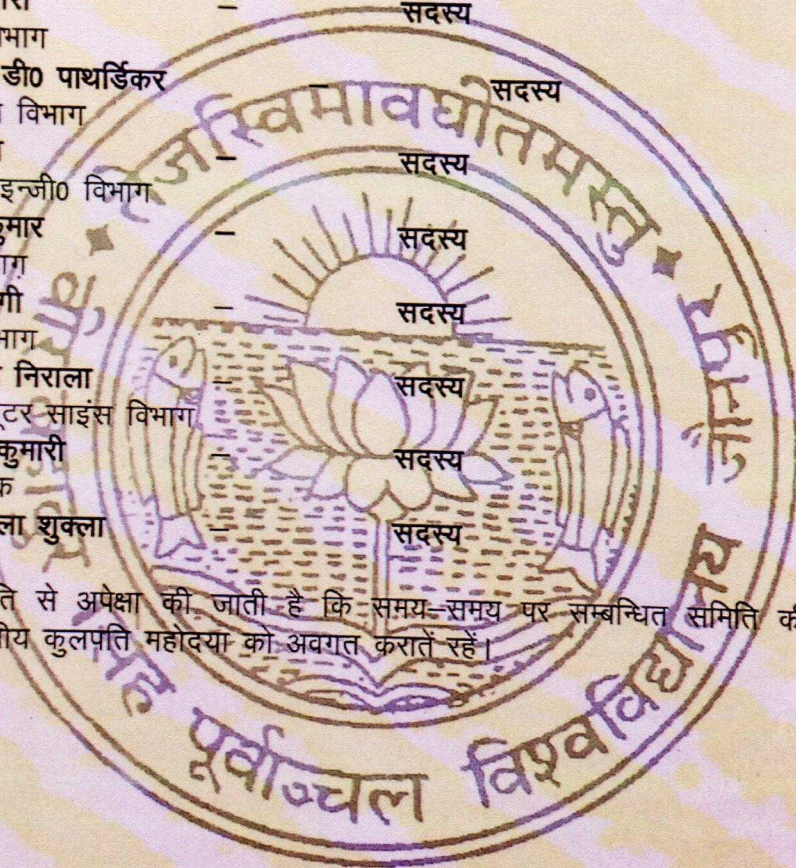 – सदस्य
भाग
डी0 पाथर्डिकर – सदस्य
विभाग
– सदस्य
इन्जी0 विभाग
– सदस्य
– सदस्य
भाग
निराला – सदस्य
साइंस विभाग
कुमारी – सदस्य
शुक्ला – सदस्य
से अपेक्षा की जाती है कि समय–समय पर सम्बन्धित समिति की
कुलपति महोदया को अवगत करातें रहें।
तेजस्विमावधीतमस्तु
वीर बहादुर सिंह पूर्वाञ्चल विश्वविद्यालय जौनपुर